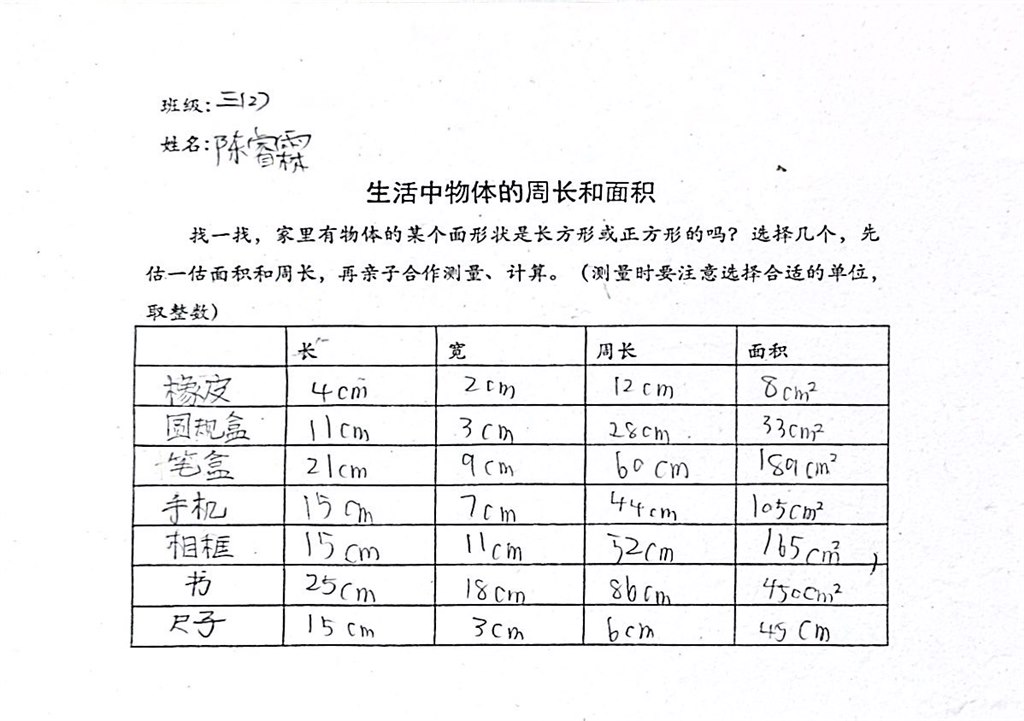 班级:三(2)
姓名:陈睿霖
生活中物体的周长和面积
找一找，家里有物体的某个面形状是长方形或正方形的吗？选择几个，先
估一估面积和周长，再亲子合作测量、计算。（测量时要注意选择合适的单位，
取整数）
长 宽 周长 面积
橡皮 4cm 2cm 12cm 8cm²
圆规盒 11cm 3cm 28cm 33cm²
笔盒 21cm 9cm 60cm 189cm²
手机 15cm 7cm 44cm 105cm²
相框 15cm 11cm 52cm 165cm²
书 25cm 18cm 86cm 450cm²
尺子 15cm 3cm 6cm 45cm